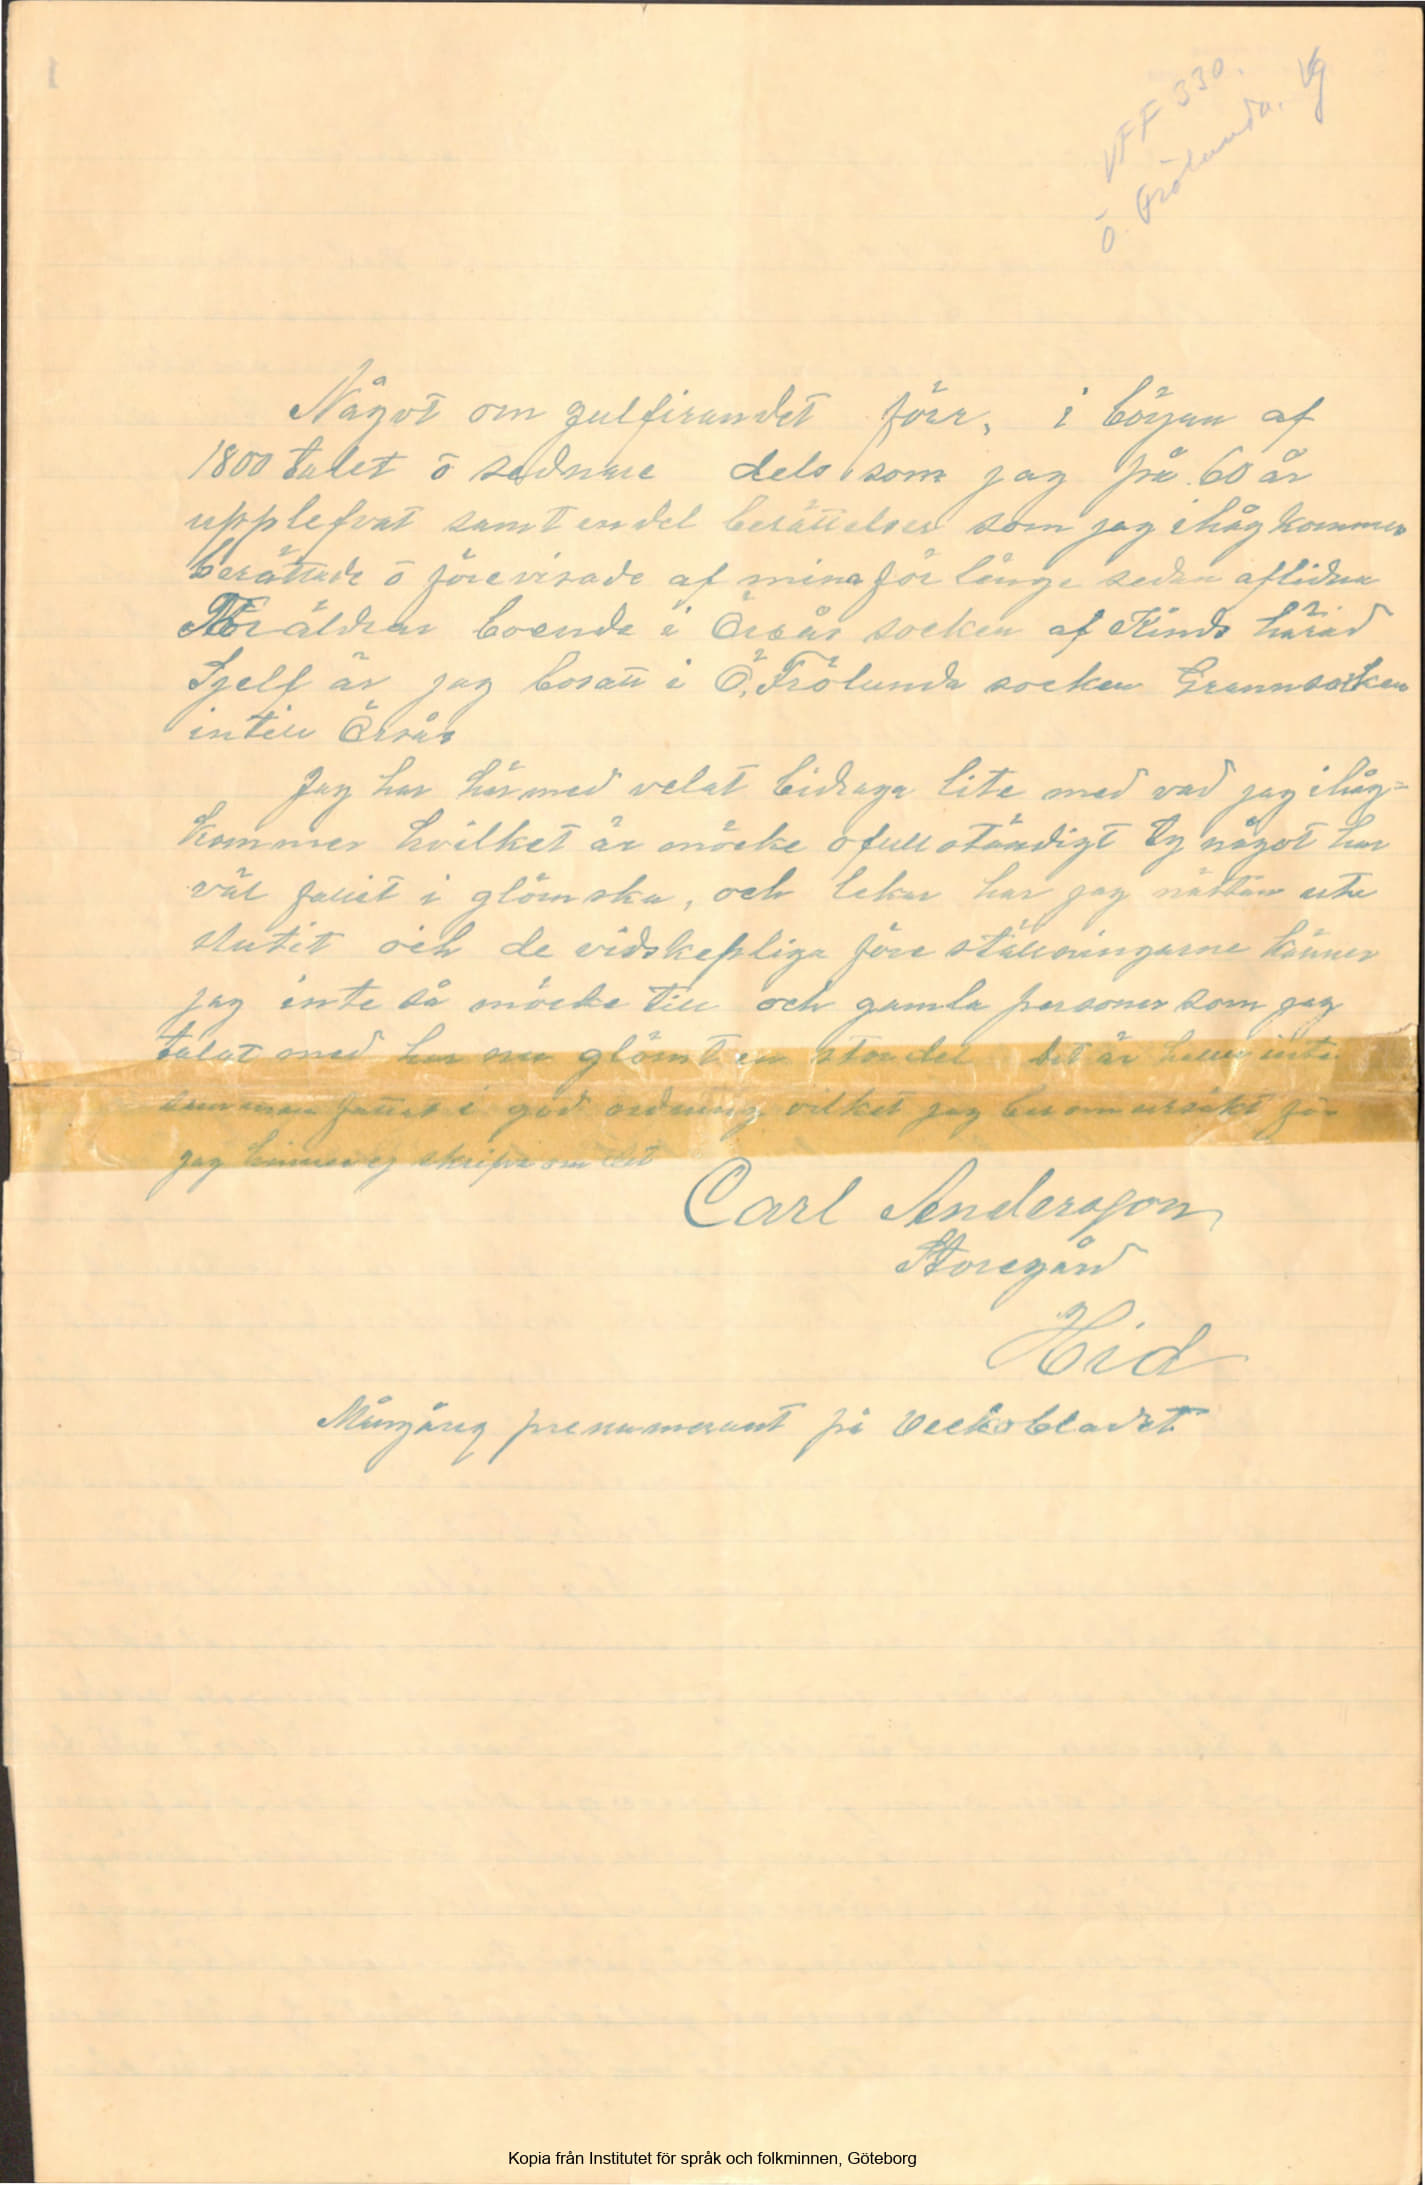 VFF 330.
Ö. Frölunda. Vg
Något om julfirandet förr, i början af
1800 talet o sednare dels som jag på 60 år
upplefvat samt en del berättelser som jag ihågkommer
berättade o förevisade af mina för länge sedan aflidna
Föräldrar boende i Örsås socken af Kinds härad
Sjelf är jag bosatt i Ö. Frölunda socken Grannsocken
intill Örsås
Jag har härmed velat bidraga lite med vad jag ihåg=
kommer hvilket är möcke ofullständigt ty något har
väl fallit i glömska, och lekar har jag nästan ute
slutit och de vidskepliga före ställningarne känner
jag inte så möcke till och gamla personer som jag
talat med har nu glömt en stor del det är heller inte
samman fattat i god ordning vilket jag ber om ursäkt för
jag hinner ej skrifva om det
Carl Andersson
Storegård
Hid
Mångårig prenumerant på Veckobladet
Kopia från Institutet för språk och folkminnen, Göteborg